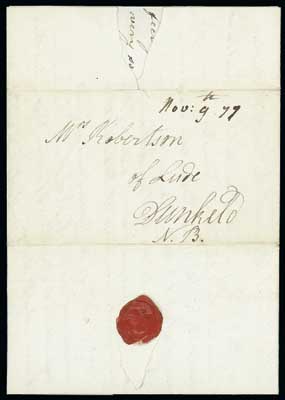 Nov: 9th 79
Mr Robertson
of Lude
Dunkeld
N. B.